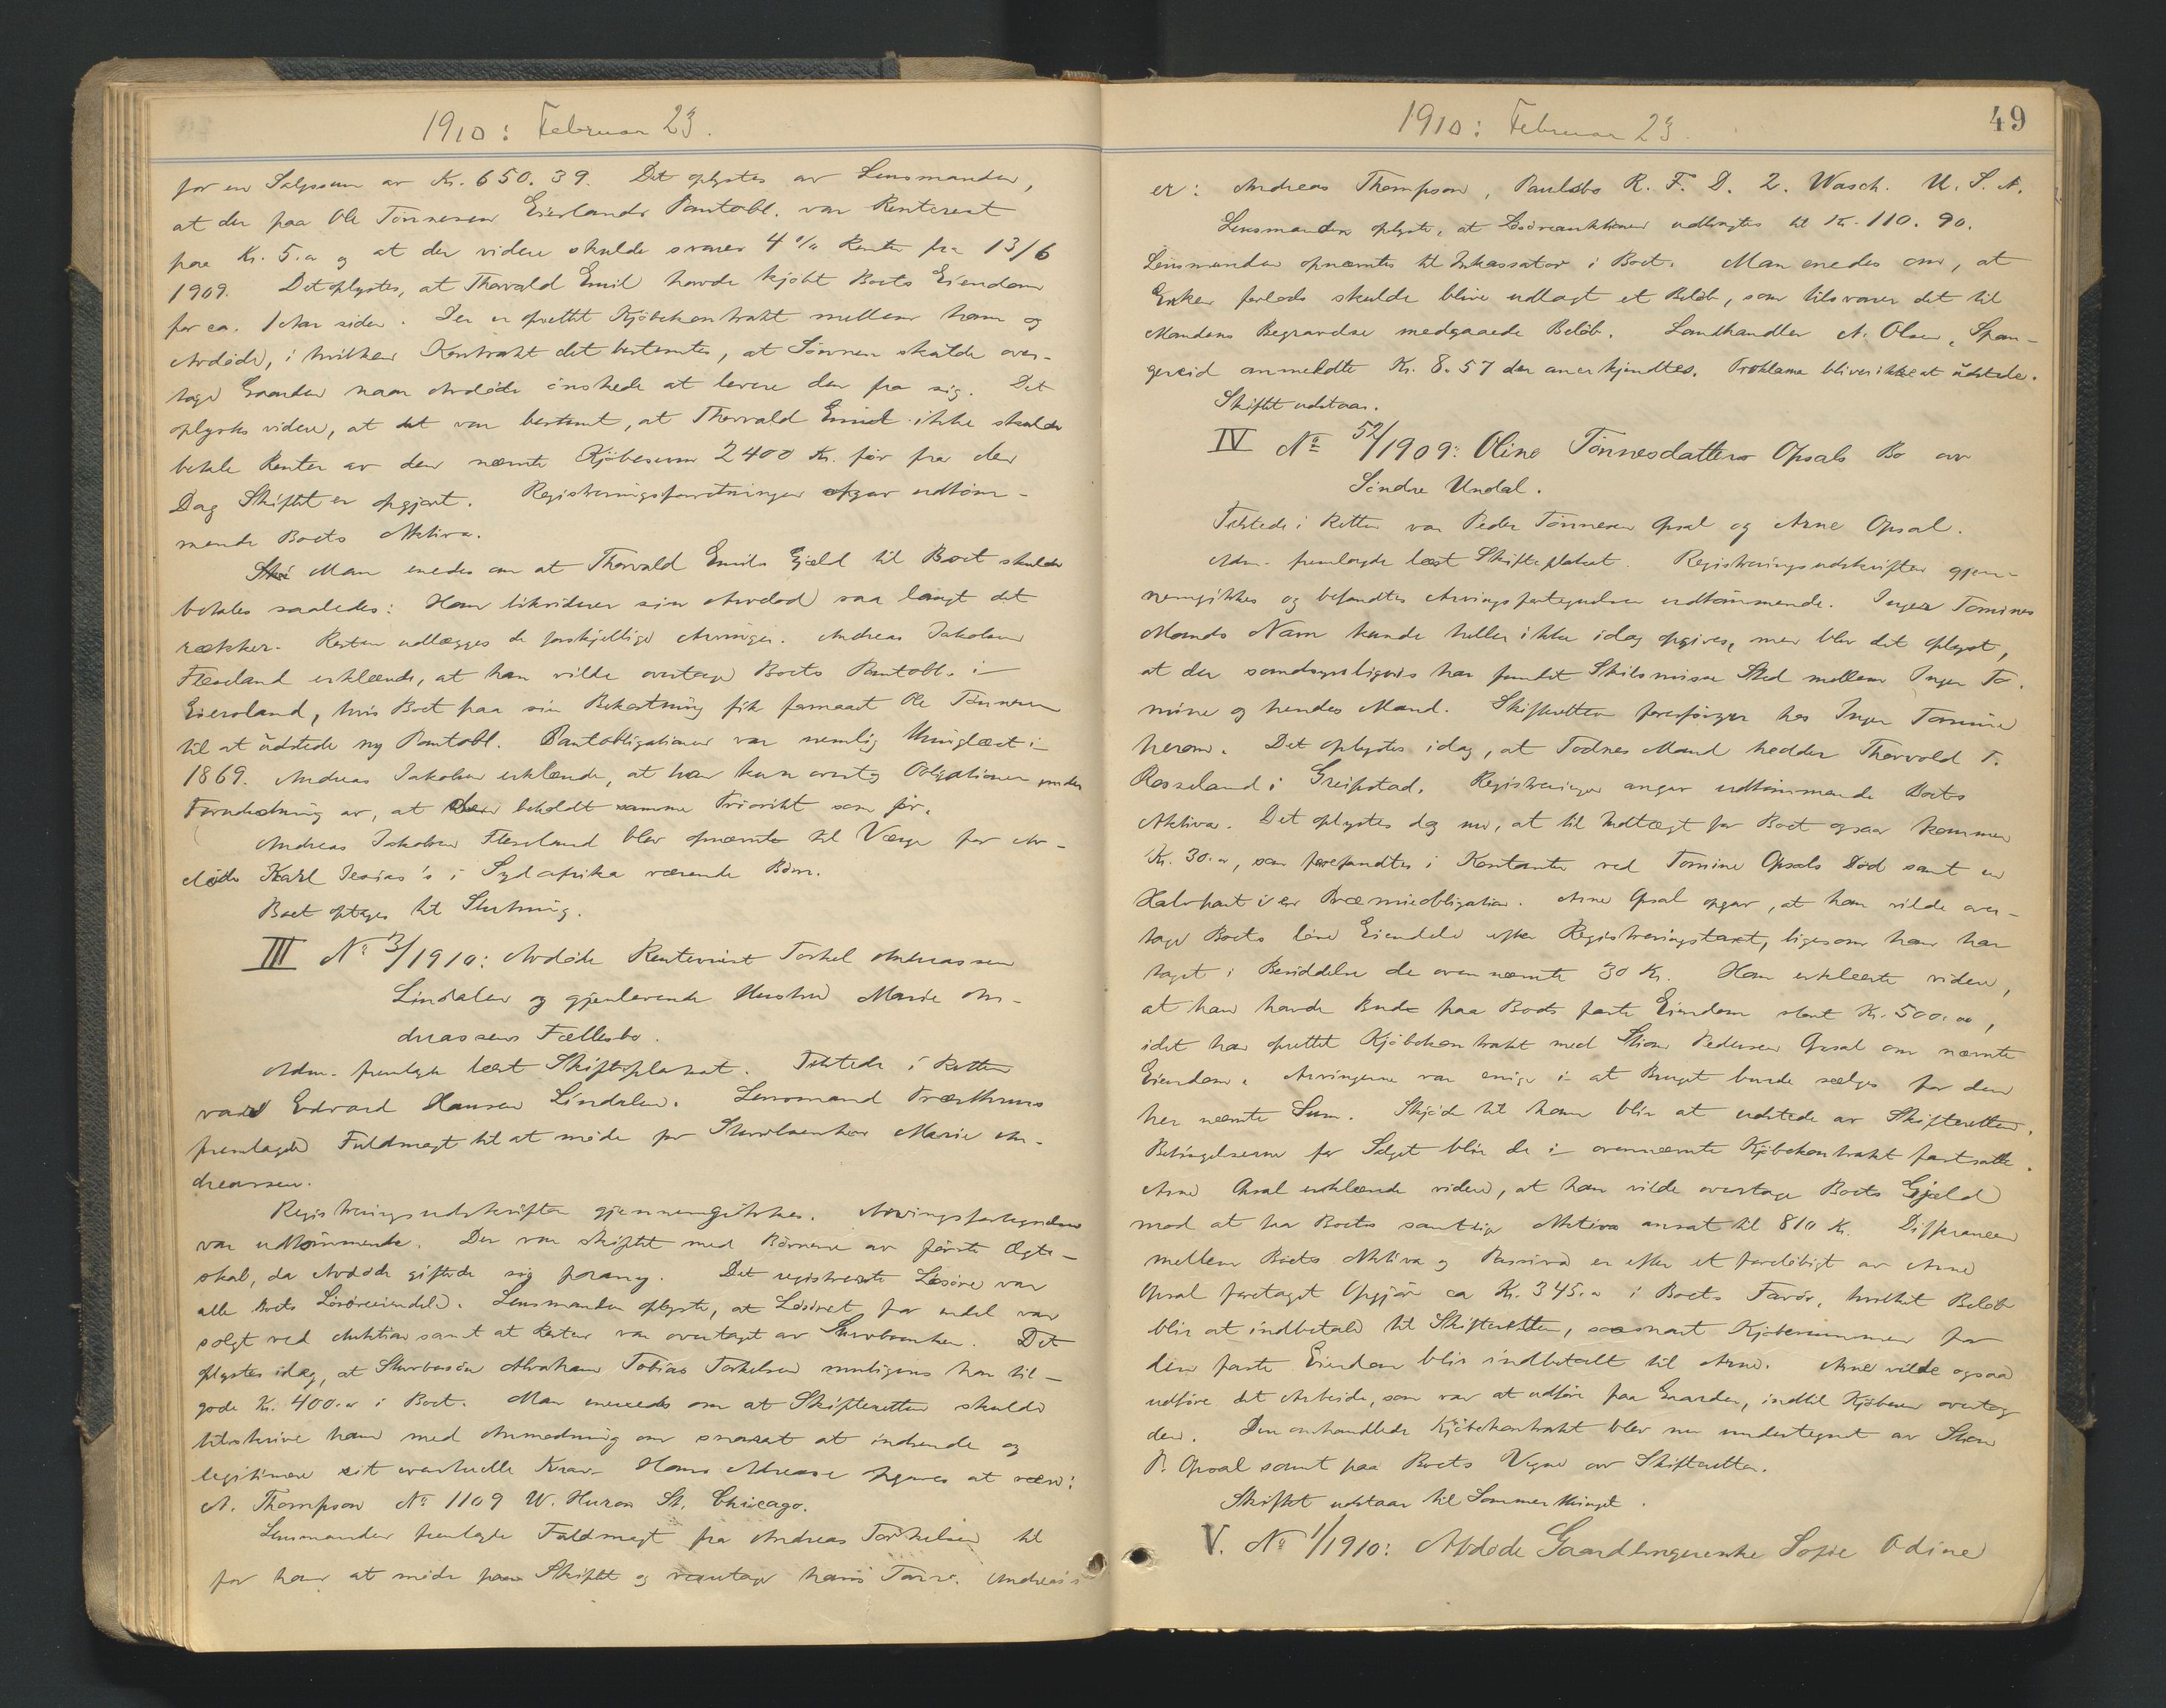 1910: Februar 23.
for en Salgssum av Kr. 650.39. Det oplystes av Lensmanden,
at der paa Ole Tønnesen Eierlands Pantobl. var Renterest
paa Kr. 5.00 og at der videre skulde svares 4 % Rente fra 13/6
1909. Det oplystes, at Thorvald Emil havde kjøbt Boets Eiendom
for ca. 1 Aar siden. Der er oprettet Kjøbekontrakt mellem ham og
Avdøde, i hvilken Kontrakt det bestemtes, at Sønnen skulde over-
tage Gaarden naar Avdøde ønskede at levere den fra sig. Det
oplystes videre, at det var bestemt, at Thorvald Emil ikke skulde
betale Renter av den nævnte Kjøbesum 2400 Kr. før fra den
Dag Skiftet er opgjort. Registreringsforretningen opgav udtøm-
mende Boets Aktiva.
Man enedes om at Thorvald Emils Gjæld til Boet skulde
betales saaledes: Han likviderer sin Arvelod saa langt det
rækker. Resten udlægges de forskjellige Arvinger. Andreas Jakobsen
Fleseland erklærede, at han vilde overtage Boets Pantobl. i
Eiersland, hvis Boet paa sin Bekostning fik formaaet Ole Tønnesen
til at udstede ny Pantobl. Pantobligationen var nemlig thinglæst i
1869. Andreas Jakobsen erklærede, at han kun overtog Obligationen under
Forudsetning av, at den beholdt samme Prioritet som før.
Andreas Jakobsen Fleseland blev opnævnt til Værge for Av-
døde Karl Jesias's i Sydafrika værende Børn.
Boet optages til Slutning.
III No 3/1910: Avdøde Rentenist Torkel Andreassen
Lindalen og gjenlevende Hustru Marie An-
dreassens Fællesbo.
Adm. fremlagde læst Skifteplakat. Tilstede i Retten
var Edvard Hansen Lindalen. Lensmand Træthuns
fremlagde Fuldmagt til at møde for Stervboenken Marie An-
dreassen.
Registreringsudskriften gjennemgikkes. Arvingsfortegnelsen
var udtømmende. Der var skiftet med Børnene av første Ægte-
skab, da Avdøde giftede sig paany. Det registrerte Løsøre var
alle Boets Løsøreeiendele. Lensmanden oplyste, at Løsøret for endel var
solgt ved Auktion samt at Resten var overtaget av Stervboenken. Det
oplystes idag, at Stervbosøn Abraham Tobias Torkelsen muligens har til-
gode Kr. 400.00 i Boet. Man enedes om at Skifteretten skulde
tilskrive ham med Anmodning om snarest at indsende og
legitimere sit eventuelle Krav. Hans Adresse opgaves at være:
A. Thompson No 1109 W. Huron St. Chicago.
Lensmanden fremlagde Fuldmagt fra Andreas Torkelsen til
for ham at møde paa Skiftet og varetage hans Tarv. Andreas's
1910: Februar 23.
49
er: Andreas Thompson, Paulsbo R. F. D. 2. Wasch. U. S. A.
Lensmanden oplyste, at Løsøreauktionen udbragtes til Kr. 110.90.
Lensmanden opnævntes til Inkassator i Boet. Man enedes om, at
Enken forlods skulde blive udlagt et Beløb, som tilsvarer det til
Mandens Begravelse medgaaede Beløb. Landhandler A. Olsen, Span-
gereid anmeldte Kr. 8.57 der anerkjendtes. Proklama bliver ikke at udstede.
Skiftet udstaar.
IV No 52/1909: Oline Tønnesdatters Opsals Bo av
Søndre Undal.
Tilstede i Retten var Peder Tønnesen Opsal og Arne Opsal.
Adm. fremlagde læst Skifteplakat. Registreringsudskriften gjen-
nemgikkes og befandtes Arvingsfortegnelsen udtømmende. Inger Tomines
Mands Navn kunde heller ikke idag opgives, men blev det oplyst,
at der sandsynligvis har fundet Skilsmisse Sted mellem Inger To-
mine og hendes Mand. Skifteretten forespørger hos Inger Tomine
herom. Det oplystes idag, at Todnes Mand hedder Thorvold T.
Rosseland i Greipstad. Registreringen angav udtømmende Boets
Aktiva. Det oplystes dog nu, at til Indtægt for Boet ogsaa kommer
Kr. 30.00, som forefandtes i Kontanter ved Tomine Opsals Død samt en
Halvpart i en Præmieobligation. Arne Opsal opgav, at han vilde over-
tage Boets løse Eiendele efter Registreringstaxt, ligesom han har
taget i Besiddelse de ovennævnte 30 Kr. Han erklærte videre,
at han havde Bud paa Boets faste Eiendom stort Kr. 500.00,
idet han oprettet Kjøbekontrakt med Stian Pedersen Opsal om nævnte
Eiendom. Arvingerne var enige i at Bruget burde sælges for den
her nævnte Sum. Skjøde til ham blir at udstede av Skifteretten.
Betingelserne for Salget blir de i ovennævnte Kjøbekontrakt fastsatte.
Arne Opsal erklærede videre, at han vilde overtage Boets Gjæld
mod at faa Boets samtlige Aktiva ansat til 810 Kr. Differancen
mellem Boets Aktiva og Passiva er efter et foreløbigt av Arne
Opsal foretaget Opgjør ca Kr. 345.00 i Boets Favør, hvilket Beløb
blir at indbetale til Skifteretten, saasnart Kjøbesummen for
den faste Eiendom blir indbetalt til Arne. Arne vilde ogsaa
udføre det Arbeide, som var at udføre paa Gaarden, indtil Kjøberen overtog
den. Den omhandlede Kjøbekontrakt blev nu undertegnet av Stian
P. Opsal samt paa Boets Vegne av Skifteretten.
Skiftet udstaar til Sommerthinget.
V. No 1/1910: Avdøde Gaardbrugerenke Sofie Odine